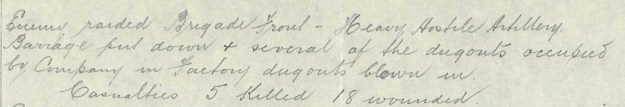 Enemy raided Brigade Front - Heavy Hostile Artillery
Barrage put down + several of the dugouts occupied
by Company in Factory dugouts blown in.
Casualties 5 killed 18 wounded.